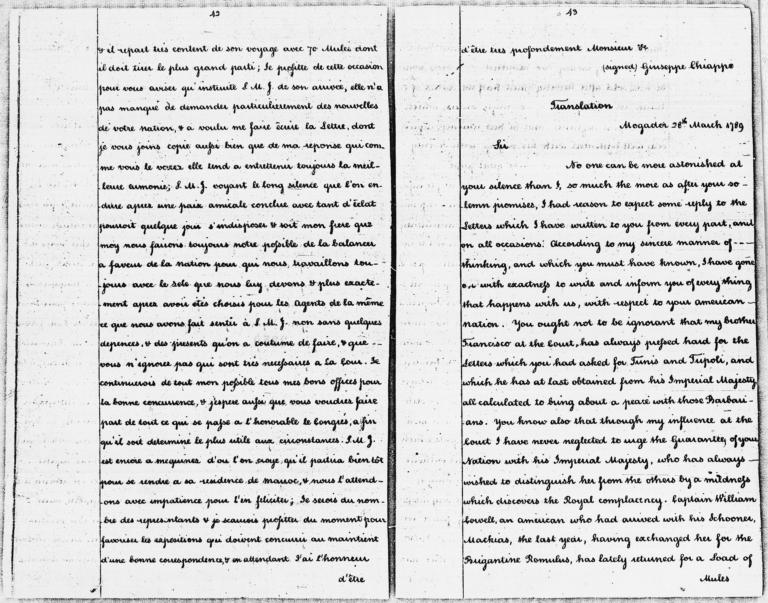 42
& il repart tres content de son voyage avec 70 Mules dont
il doit tirer le plus grand parti; Je profitte de cette occasion
pour vous aviser qu'instruite S. M. J. de son arrivée, elle n'a
pas manqué de demander particulierement des nouvelles
de votre nation, & a voulu me faire écrire la Lettre, dont
je vous joins copie aussi bien que de ma reponse qui com-
me vous le verez elle tend a entretenir toujours la meil-
leure armonie; S. M. J. voyant le long silence que l'on en-
dure apres une paix amicale conclue avec tant d'éclat
pourroit quelque jour s'indisposer & soit mon frere que
moy nous faisons toujours notre possible de la balancer
a faveur de la nation pour qui nous travaillons tou-
jours avec le zele que nous luy devons & plus exacte-
ment apres avoir étés choisis pour les agents de la même
ce que nous avons fait sentir à S. M. J. non sans quelques
depences, & des presents qu'on a coutume de faire, & que
vous n'ignorez pas qui sont trés necessaires a la Cour. Je
continuerois de tout mon possible tous mes bons offices pour
la bonne concurrence, & j'espere aussi que vous voudres faire
part de tout ce qui se passe a l'honorable le Congrés, a fin
qu'il soit determiné le plus utile aux circonstances. S. M. J.
est encore a mequines d'ou l'on croye, qu'il partira bien tôt
pour se rendre a sa residence de maroc, & nous l'attend-
ons avec impatience pour l'en feliciter; Je serois du nom-
bre des representants & je scaurois profiter du moment pour
favoriser les expositions qui doivent concourir au maintient
d'une bonne correspondence, & en attendant J'ai l'honneur
d'être
43
d'être tres profondement Monsieur &c
(signed) Giuseppe Chiappe
Translation
Mogador 28th March 1789
Sir
No one can be more astonished at
your silence than I, so much the more as after your so-
lemn promises, I had reason to expect some reply to the
Letters which I have written to you from every part, and
on all occasions: According to my sincere manner of ---
thinking, and which you must have known, I have gone
on with exactness to write and inform you of every thing
that happens with us, with respect to your american -
nation. You ought not to be ignorant that my brother
Francisco at the Court, has always pressed hard for the
Letters which you had asked for Tunis and Tripoli, and
which he has at last obtained from his Imperial Majesty
all calculated to bring about a peace with those Barbari-
ans. You know also that through my influence at the
Court I have never neglected to urge the Guarantee, of your
Nation with his Imperial Majesty, who has always -
wished to distinguish her from the others by a mildness
which discovers the Royal complacency. Captain William
Cowell, an american who had arrived with his Schooner,
Machias, the last year, having exchanged her for the
Brigantine Romulus, has lately returned for a Load of
Mules